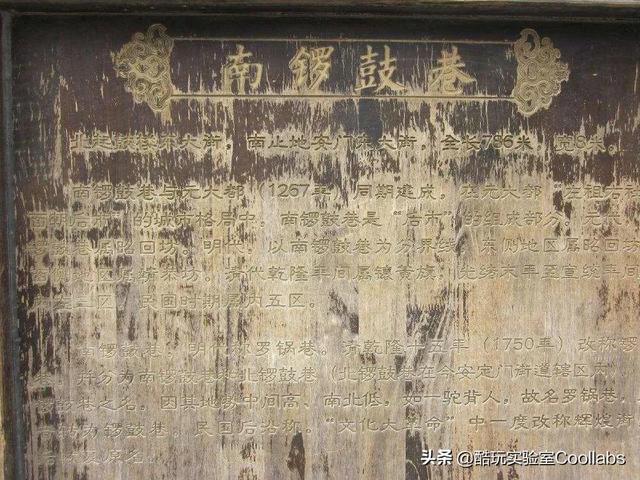 南锣鼓巷
北起鼓楼东大街，南止地安门东大街，全长786米，宽8米。
南锣鼓巷与元大都（1267年）同期建成。在元大都“左祖右
后市”的城市格局中，南锣鼓巷是“后市”的组成部分。元
属昭回坊。明代，以南锣鼓巷为分界线，东侧地区属昭回
地区属靖恭坊。清代乾隆年间属镶黄旗，光绪末年至宣统年间
区。民国时期属内五区。
南锣鼓巷，明代称罗锅巷。清乾隆十五年（1750年）改称锣
巷，并分为南锣鼓巷和北锣鼓巷（北锣鼓巷在今安定门街道辖区内
鼓巷之名，因其地势中间高、南北低，如一驼背人，故名罗锅巷，
为锣鼓巷。民国后沿称。“文化大革命”中一度改称辉煌街
复原名。
头条 @酷玩实验室Coollabs